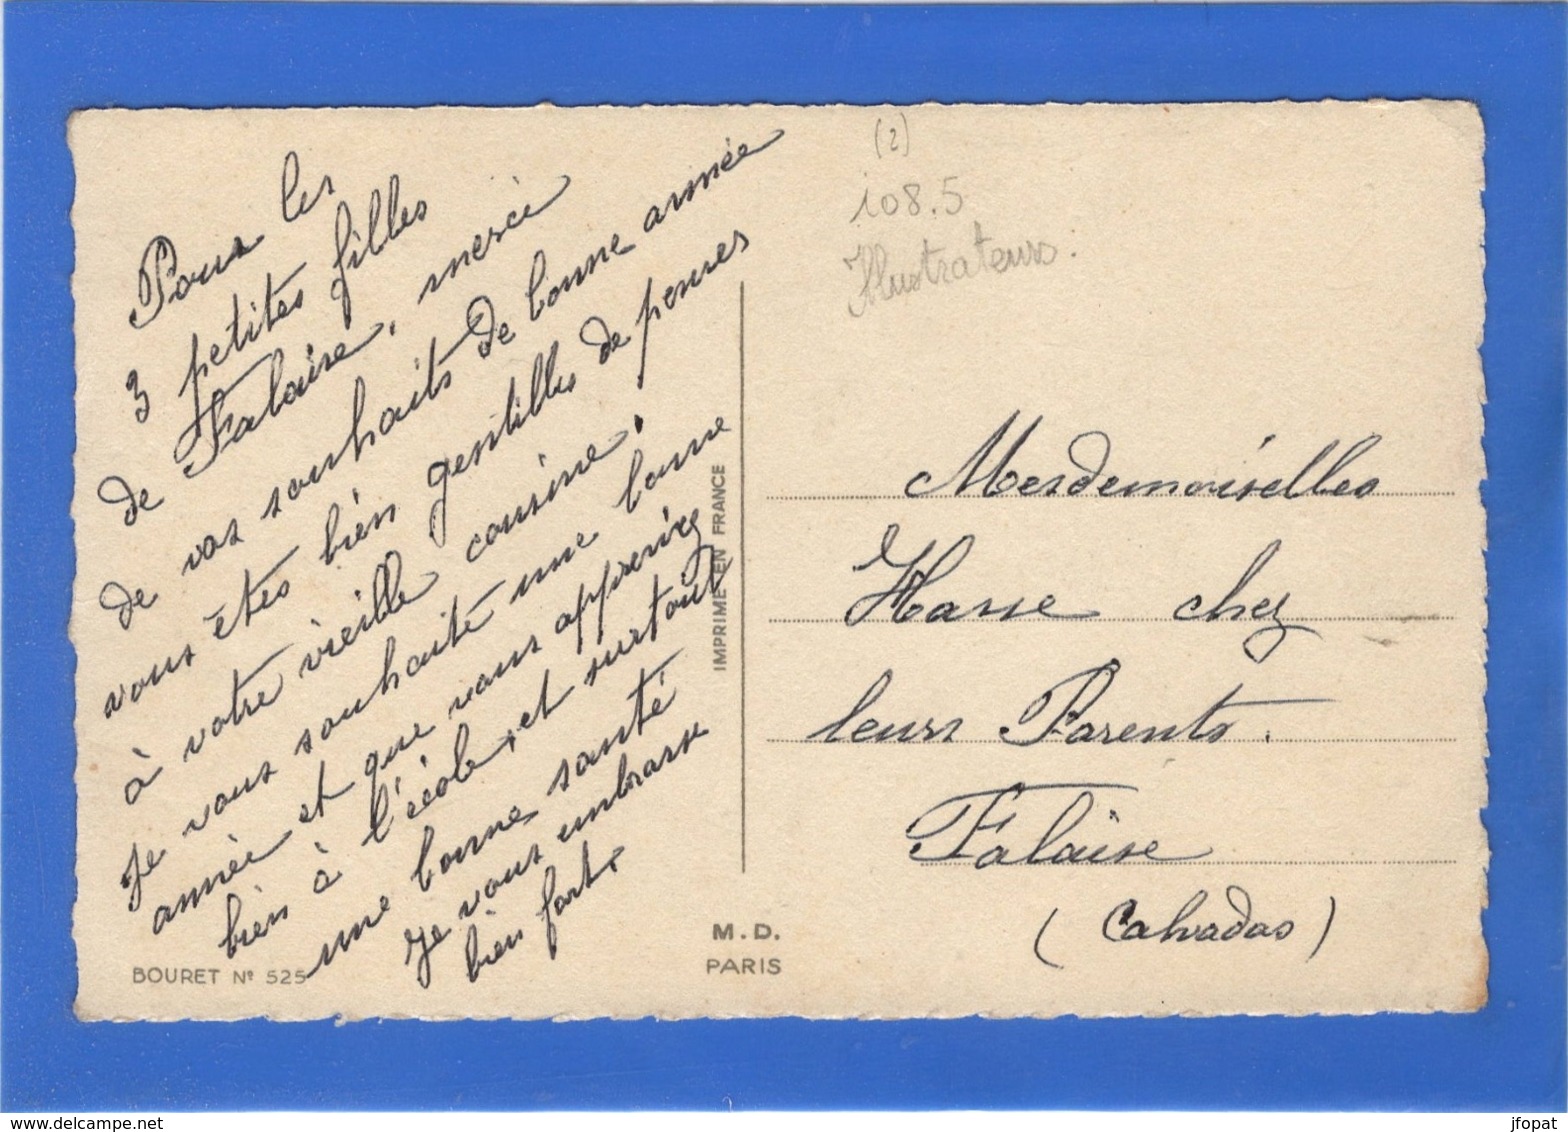 Pour les
3 petites filles
de Falaise, mercie
de vos souhaits de bonne année
vous êtes bien gentilles de penser
à votre vieille cousine.
Je vous souhaite une bonne
année et que vous appreniez
bien à l'école, et surtout
une bonne santé
Je vous embrasse
bien fort.
BOURET Nº 525
IMPRIMÉ EN FRANCE
M.D.
PARIS
(2)
108.5
Illustrateurs:
Mesdemoiselles
Hasse chez
leurs Parents.
Falaise
(Calvados)
jfopat